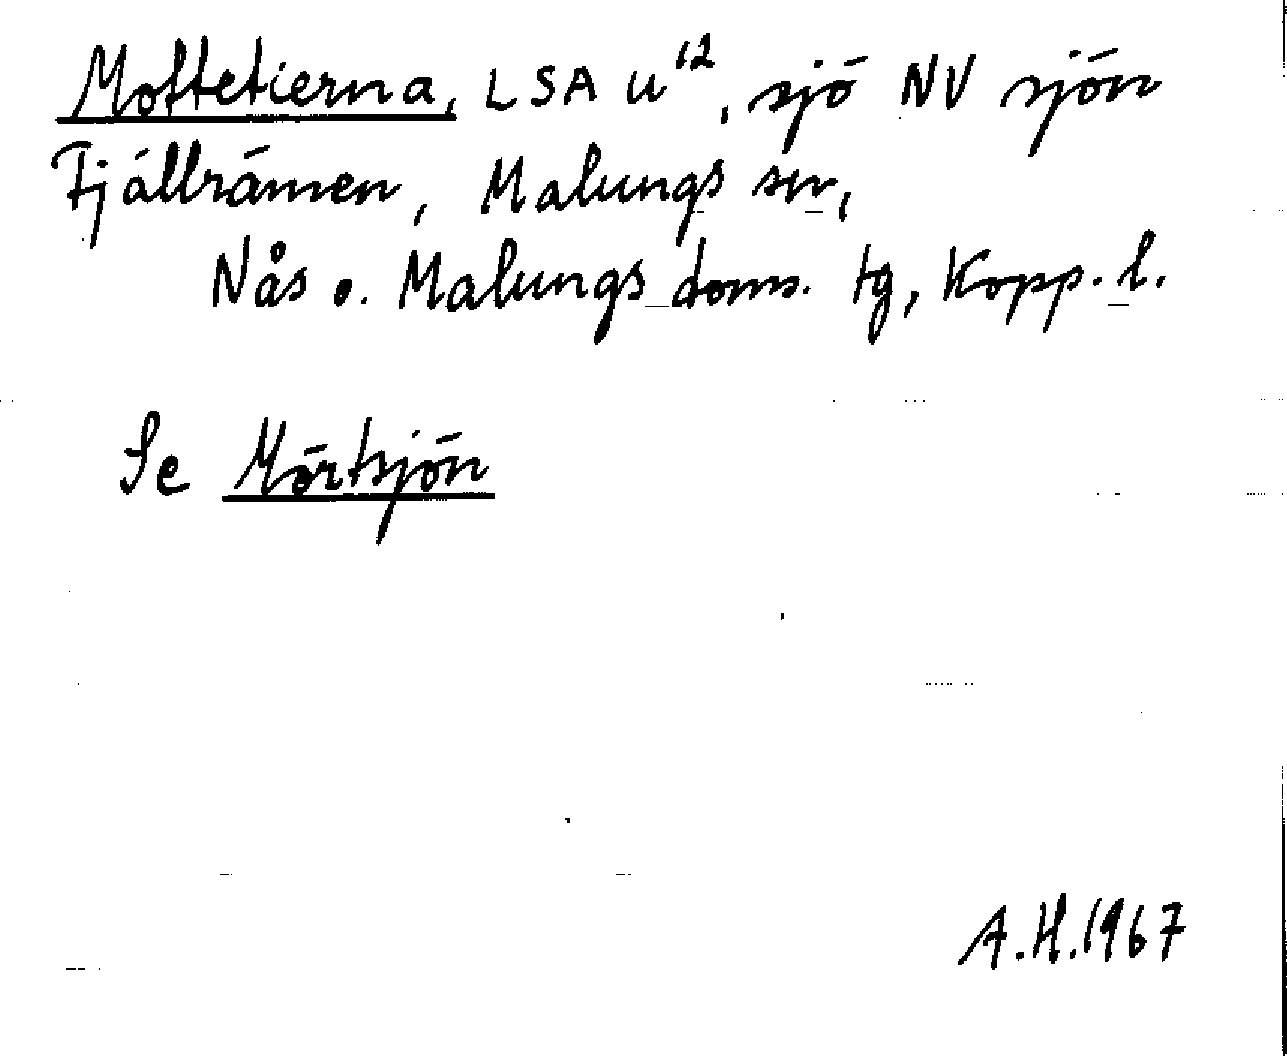 Mofftetierna, LSA U¹², sjö NV sjön
Fjällrämen, Malungs sn,
Nås o. Malungs doms. tg, Kopp. l.
Se Mörtsjön
A.H.1967